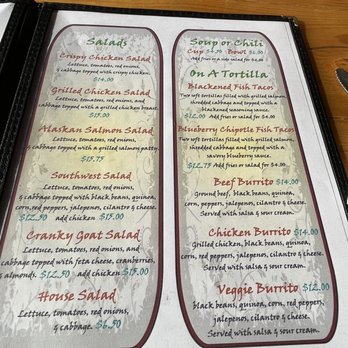 Salads
Crispy Chicken Salad
Lettuce, tomatoes, red onions,
& cabbage topped with crispy chicken.
$14.00
Grilled Chicken Salad
Lettuce, tomatoes, red onions, and
cabbage topped with a grilled chicken breast.
$15.00
Alaskan Salmon Salad
Lettuce, tomatoes, red onions,
& cabbage topped with a grilled salmon patty.
$15.75
Southwest Salad
Lettuce, tomatoes, red onions,
& cabbage topped with black beans, quinoa,
corn, red peppers, jalepenos, cilantro & cheese.
$12.50 add chicken $15.00
Cranky Goat Salad
Lettuce, tomatoes, red onions, and
cabbage topped with feta cheese, cranberries,
& almonds. $12.50 add chicken $15.00
House Salad
Lettuce, tomatoes, red onions,
& cabbage. $6.50
Soup or Chili
Cup Bowl
Add fries or a side salad for $4.00
On A Tortilla
Blackened Fish Tacos
Two soft tortillas filled with grilled salmon,
shredded cabbage and topped with a
blackened seasoning sauce.
$12.00 Add fries or salad for $4.00
Blueberry Chipotle Fish Tacos
Two soft tortillas filled with grilled salmon,
shredded cabbage and topped with a
savory blueberry sauce.
$12.75 Add fries or salad for $4.00
Beef Burrito $14.00
Ground beef, black beans, quinoa,
corn, peppers, jalepenos, cilantro & cheese.
Served with salsa & sour cream.
Chicken Burrito $14.00
Grilled chicken, black beans, quinoa,
corn, red peppers, jalepenos, cilantro & cheese.
Served with salsa & sour cream.
Veggie Burrito $12.00
black beans, quinoa, corn, red peppers,
jalapenos, cilantro & cheese.
Served with salsa & sour cream.